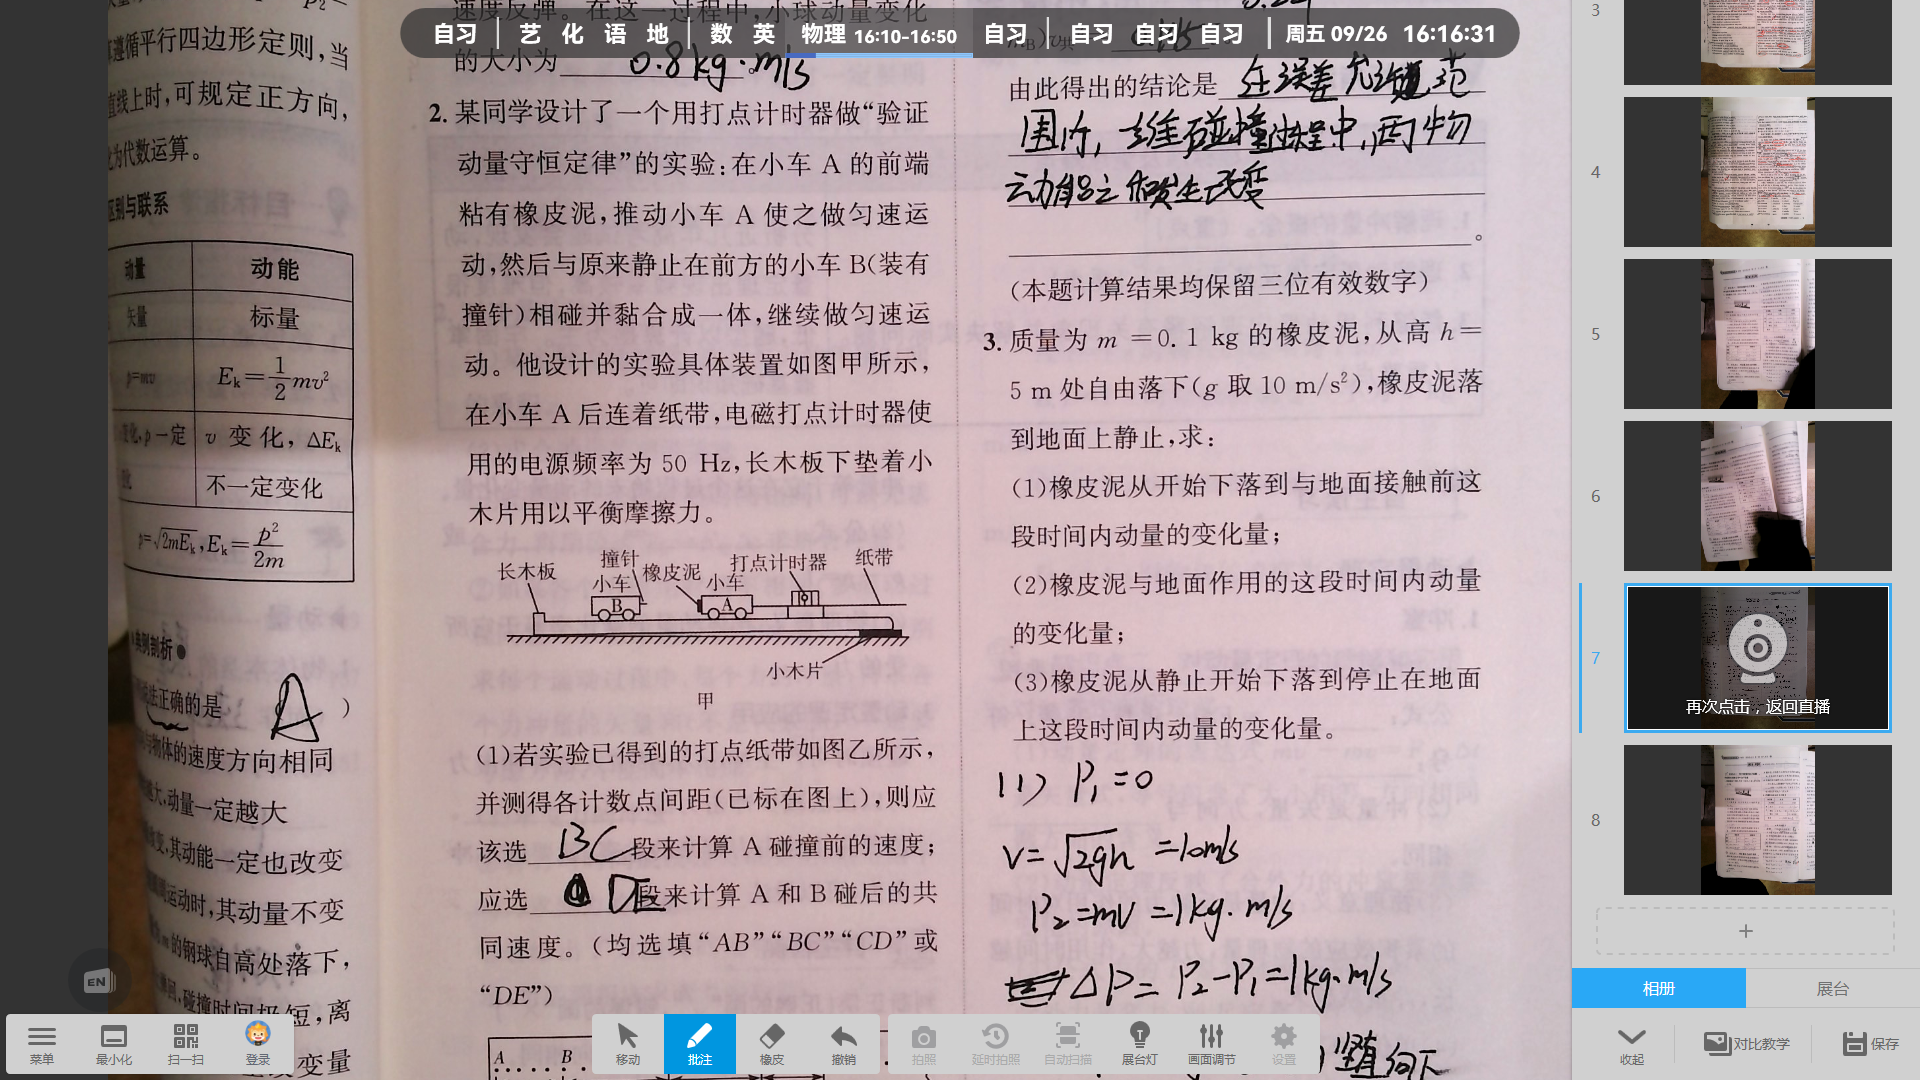 自习 艺 化 语 地 数 英 物理 16:10-16:50 自习 自习 自习 自习 周五 09/26 16:16:31
遵循平行四边形定则,当
直线上时,可规定正方向,
为代数运算。
区别与联系
动量 动能
矢量 标量
p=mv Eₖ=1/2 mv²
v 变化,ΔEₖ
不一定变化
p=√2mEₖ,Eₖ=p²/2m
典例剖析
正确的是 A )
物体的速度方向相同
越大,动量一定越大
改变,其动能一定也改变
运动时,其动量不变
的钢球自高处落下,
碰撞时间极短,离
变量
速度反弹。在这一过程中,小球动量变化
的大小为 0.8kg·m/s 。
2. 某同学设计了一个用打点计时器做“验证
动量守恒定律”的实验:在小车 A 的前端
粘有橡皮泥,推动小车 A 使之做匀速运
动,然后与原来静止在前方的小车 B(装有
撞针)相碰并黏合成一体,继续做匀速运
动。他设计的实验具体装置如图甲所示,
在小车 A 后连着纸带,电磁打点计时器使
用的电源频率为 50 Hz,长木板下垫着小
木片用以平衡摩擦力。
长木板 撞针 小车 橡皮泥 小车 打点计时器 纸带
B A
小木片
甲
(1)若实验已得到的打点纸带如图乙所示,
并测得各计数点间距(已标在图上),则应
该选 BC 段来计算 A 碰撞前的速度;
应选 DE 段来计算 A 和 B 碰后的共
同速度。(均选填“AB”“BC”“CD”或
“DE”)
A B
由此得出的结论是 在误差允许范
围内,
碰撞过程中,两物
(本题计算结果均保留三位有效数字)
3. 质量为 m =0.1 kg 的橡皮泥,从高 h=
5 m 处自由落下(g 取 10 m/s²),橡皮泥落
到地面上静止,求:
(1)橡皮泥从开始下落到与地面接触前这
段时间内动量的变化量;
(2)橡皮泥与地面作用的这段时间内动量
的变化量;
(3)橡皮泥从静止开始下落到停止在地面
上这段时间内动量的变化量。
(1) P₁=0
V=√2gh =10m/s
P₂=mV=1kg·m/s
ΔP=P₂-P₁=1kg·m/s
竖直向下
3
4
5
6
7
再次点击,返回直播
8
+
相册 展台
EN
菜单 最小化 扫一扫 登录
移动 批注 橡皮 撤销
拍照 延时拍照 自动扫描 展台灯 画面调节 设置
收起 对比教学 保存